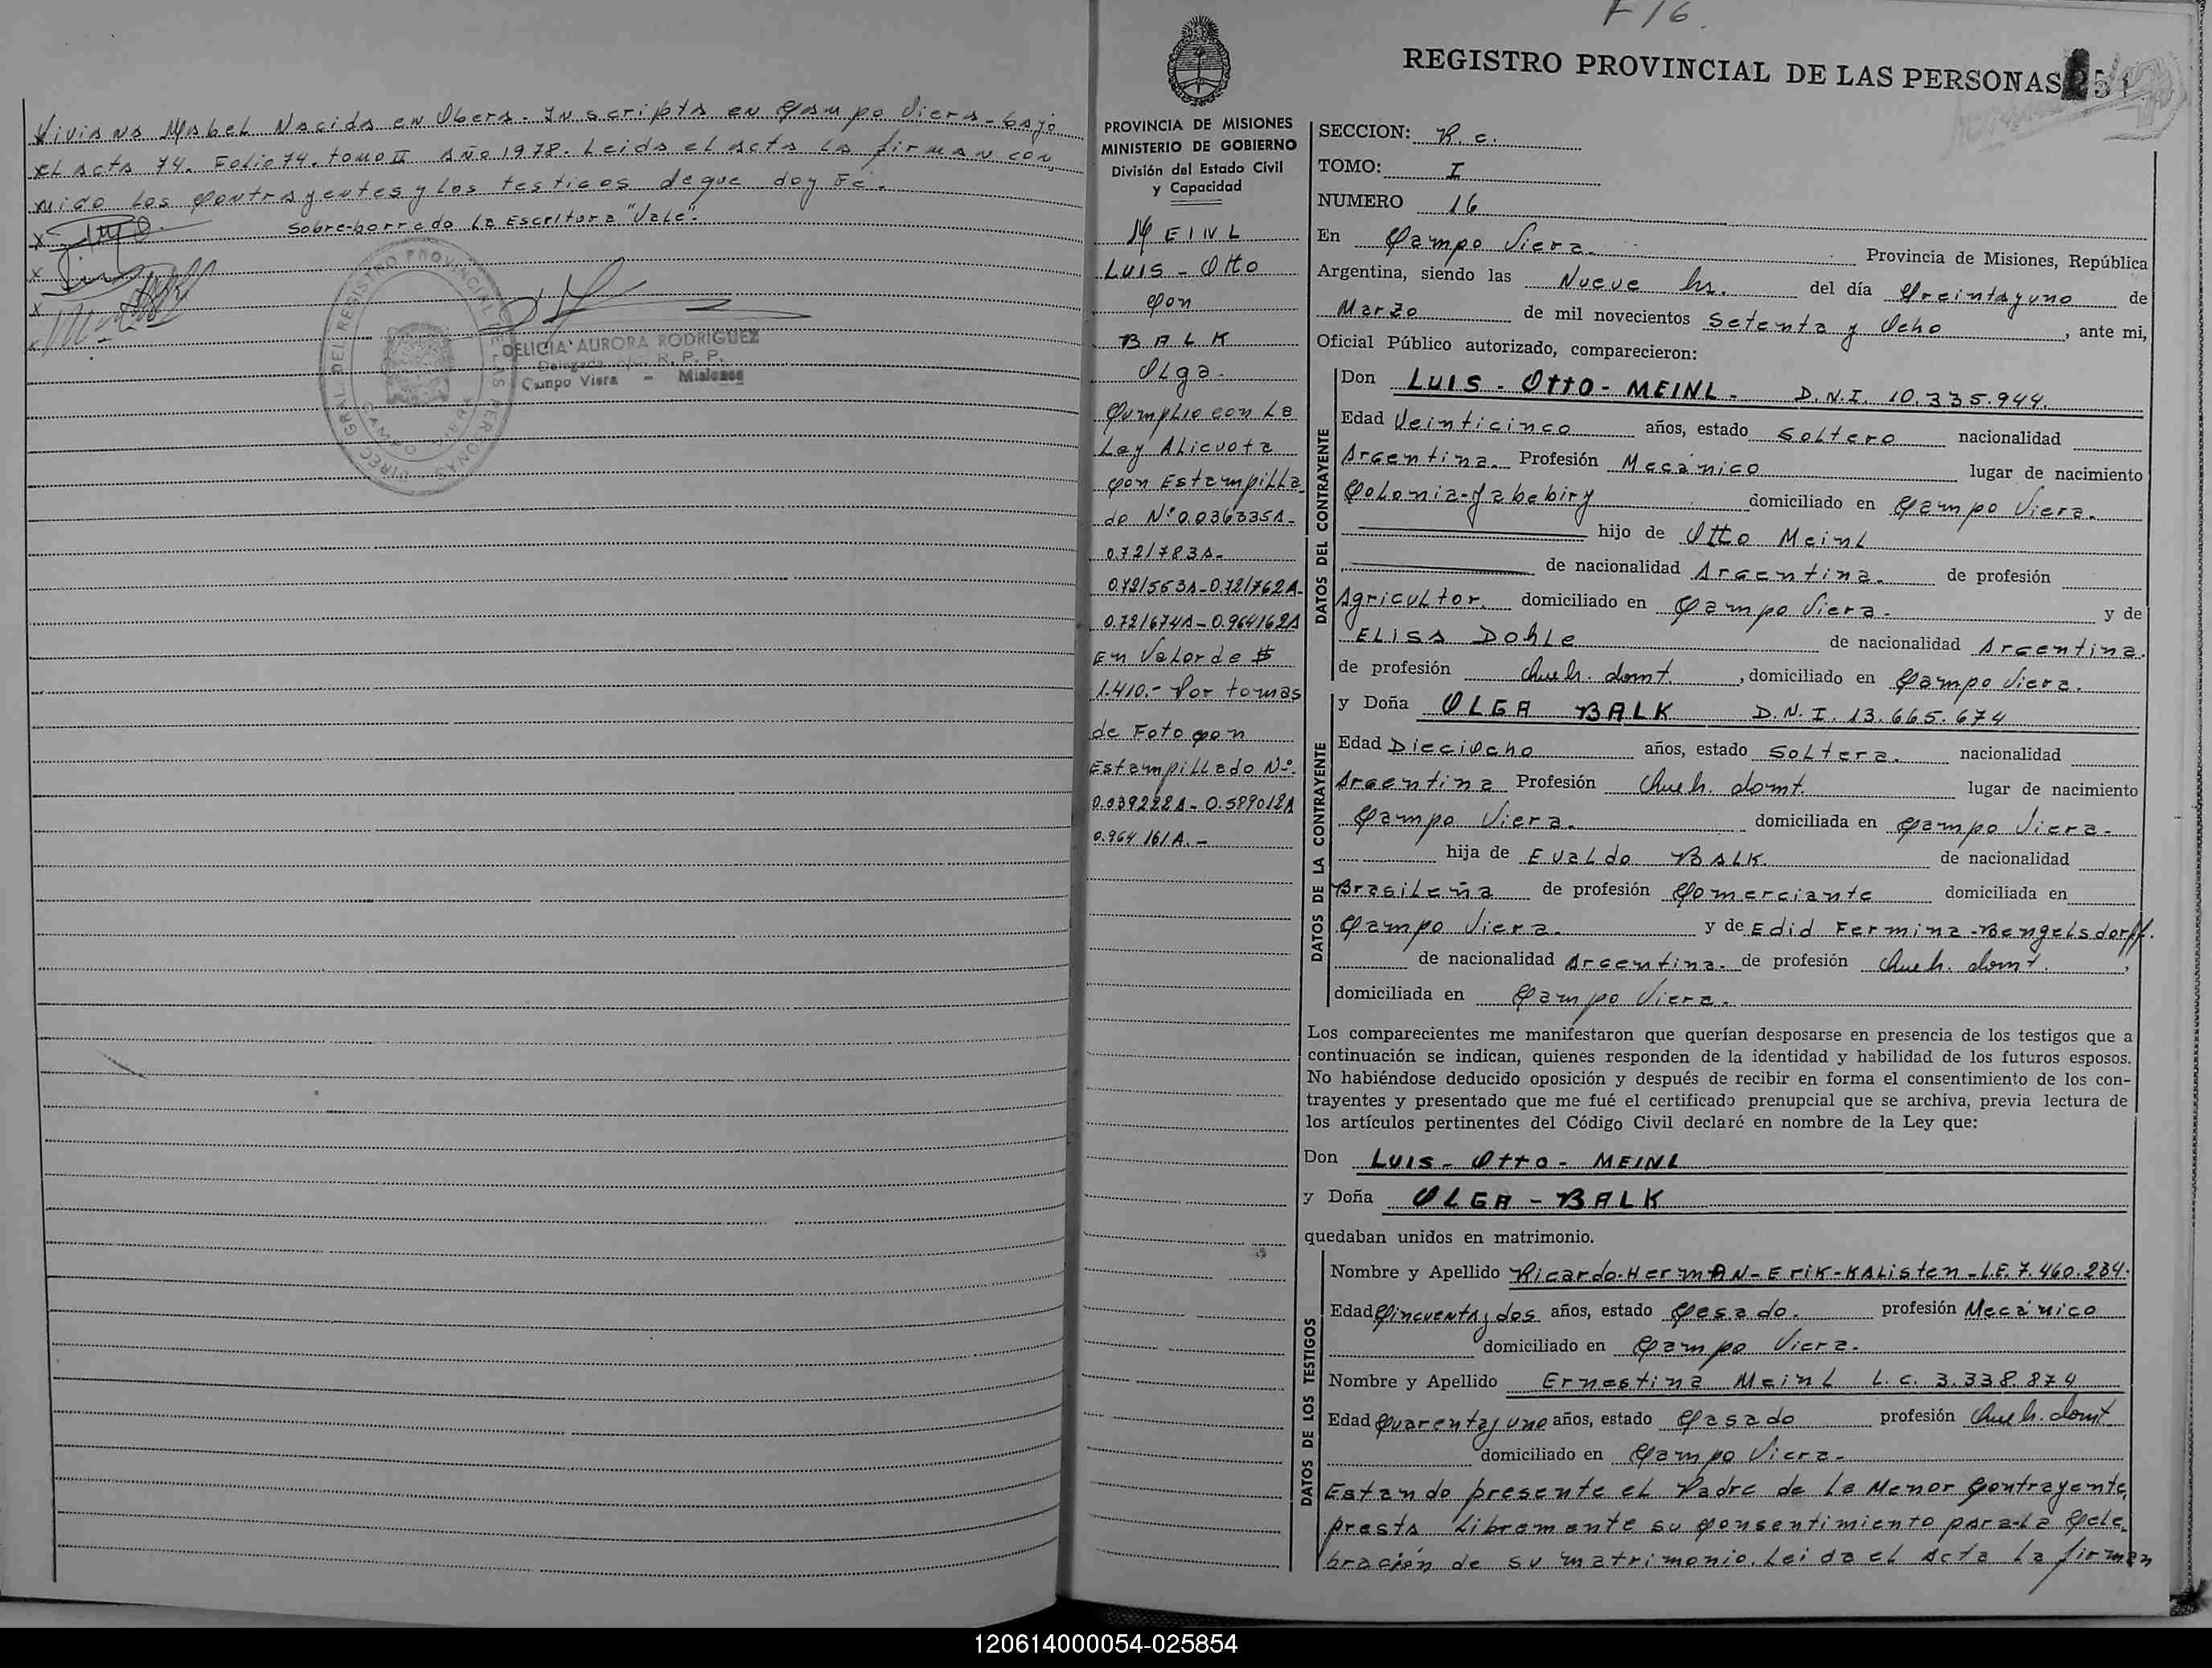 Viviana Mabel Nacida en Obera. Inscripta en Campo Viera - bajo
el acta 74. Folio 74. tomo II Año 1978. Leida el acta la firman con
migo los Contrayentes y los testigos de que doy Fe.
Sobre-borrado la Escritura "Vale".
DIREC. GRAL. DEL REGISTRO PROVINCIAL DE LAS PERSONAS
CAMPO VIERA
DELICIA AURORA RODRIGUEZ
Delegada R. P. P.
Campo Viera - Misiones
F 16.
REGISTRO PROVINCIAL DE LAS PERSONAS
PROVINCIA DE MISIONES
MINISTERIO DE GOBIERNO
División del Estado Civil
y Capacidad
MEINL
Luis - Otto
Con
BALK
Olga -
Cumplio con La
Ley Alicuota
con Estampilla
do Nº 0.036335A-
0.721783A-
0.721553A-0.721762A-
0.721674A-0.964162A
En Valor de $
1.410.- Por tomas
de Foto con
Estampillado Nº.
0.039222A-0.589012A
0.964161A.-
SECCION: R. c.
TOMO: I
NUMERO 16
En Campo Viera. Provincia de Misiones, República
Argentina, siendo las Nueve hs. del día Treintayuno de
Marzo de mil novecientos Setenta y Ocho, ante mi,
Oficial Público autorizado, comparecieron:
DATOS DEL CONTRAYENTE
Don LUIS - Otto - MEINL - D.N.I. 10.335.944.
Edad Veinticinco años, estado Soltero nacionalidad
Argentina. Profesión Mecánico lugar de nacimiento
Colonia-Yabebiry domiciliado en Campo Viera.
hijo de Otto Meinl
de nacionalidad Argentina. de profesión
Agricultor. domiciliado en Campo Viera. y de
ELISA Dohle de nacionalidad Argentina.
de profesión Queh. domt., domiciliado en Campo Viera.
DATOS DE LA CONTRAYENTE
y Doña OLGA BALK D.N.I. 13.665.674
Edad Dieciocho años, estado Soltera. nacionalidad
Argentina Profesión Queh. domt. lugar de nacimiento
Campo Viera. domiciliada en Campo Viera.
hija de Evaldo BALK. de nacionalidad
Brasileña de profesión Comerciante domiciliada en
Campo Viera. y de Edid Fermina-Bengelsdorff.
de nacionalidad Argentina. de profesión Queh. domt.,
domiciliada en Campo Viera.
Los comparecientes me manifestaron que querían desposarse en presencia de los testigos que a
continuación se indican, quienes responden de la identidad y habilidad de los futuros esposos.
No habiéndose deducido oposición y después de recibir en forma el consentimiento de los con-
trayentes y presentado que me fué el certificado prenupcial que se archiva, previa lectura de
los artículos pertinentes del Código Civil declaré en nombre de la Ley que:
Don LUIS - Otto - MEINL
y Doña OLGA - BALK
quedaban unidos en matrimonio.
DATOS DE LOS TESTIGOS
Nombre y Apellido Ricardo-HermAN-Erik-KAListen-L.E. 7.460.234.
Edad Cincuentaydos años, estado Casado. profesión Mecánico
domiciliado en Campo Viera.
Nombre y Apellido Ernestina Meinl L.C. 3.338.874
Edad Cuarentayuno años, estado Casado profesión Queh. domt
domiciliado en Campo Viera.
Estando presente el Padre de la Menor Contrayente,
presta libremente su consentimiento para la Cele
bración de su matrimonio. Leida el acta la firman
120614000054-025854